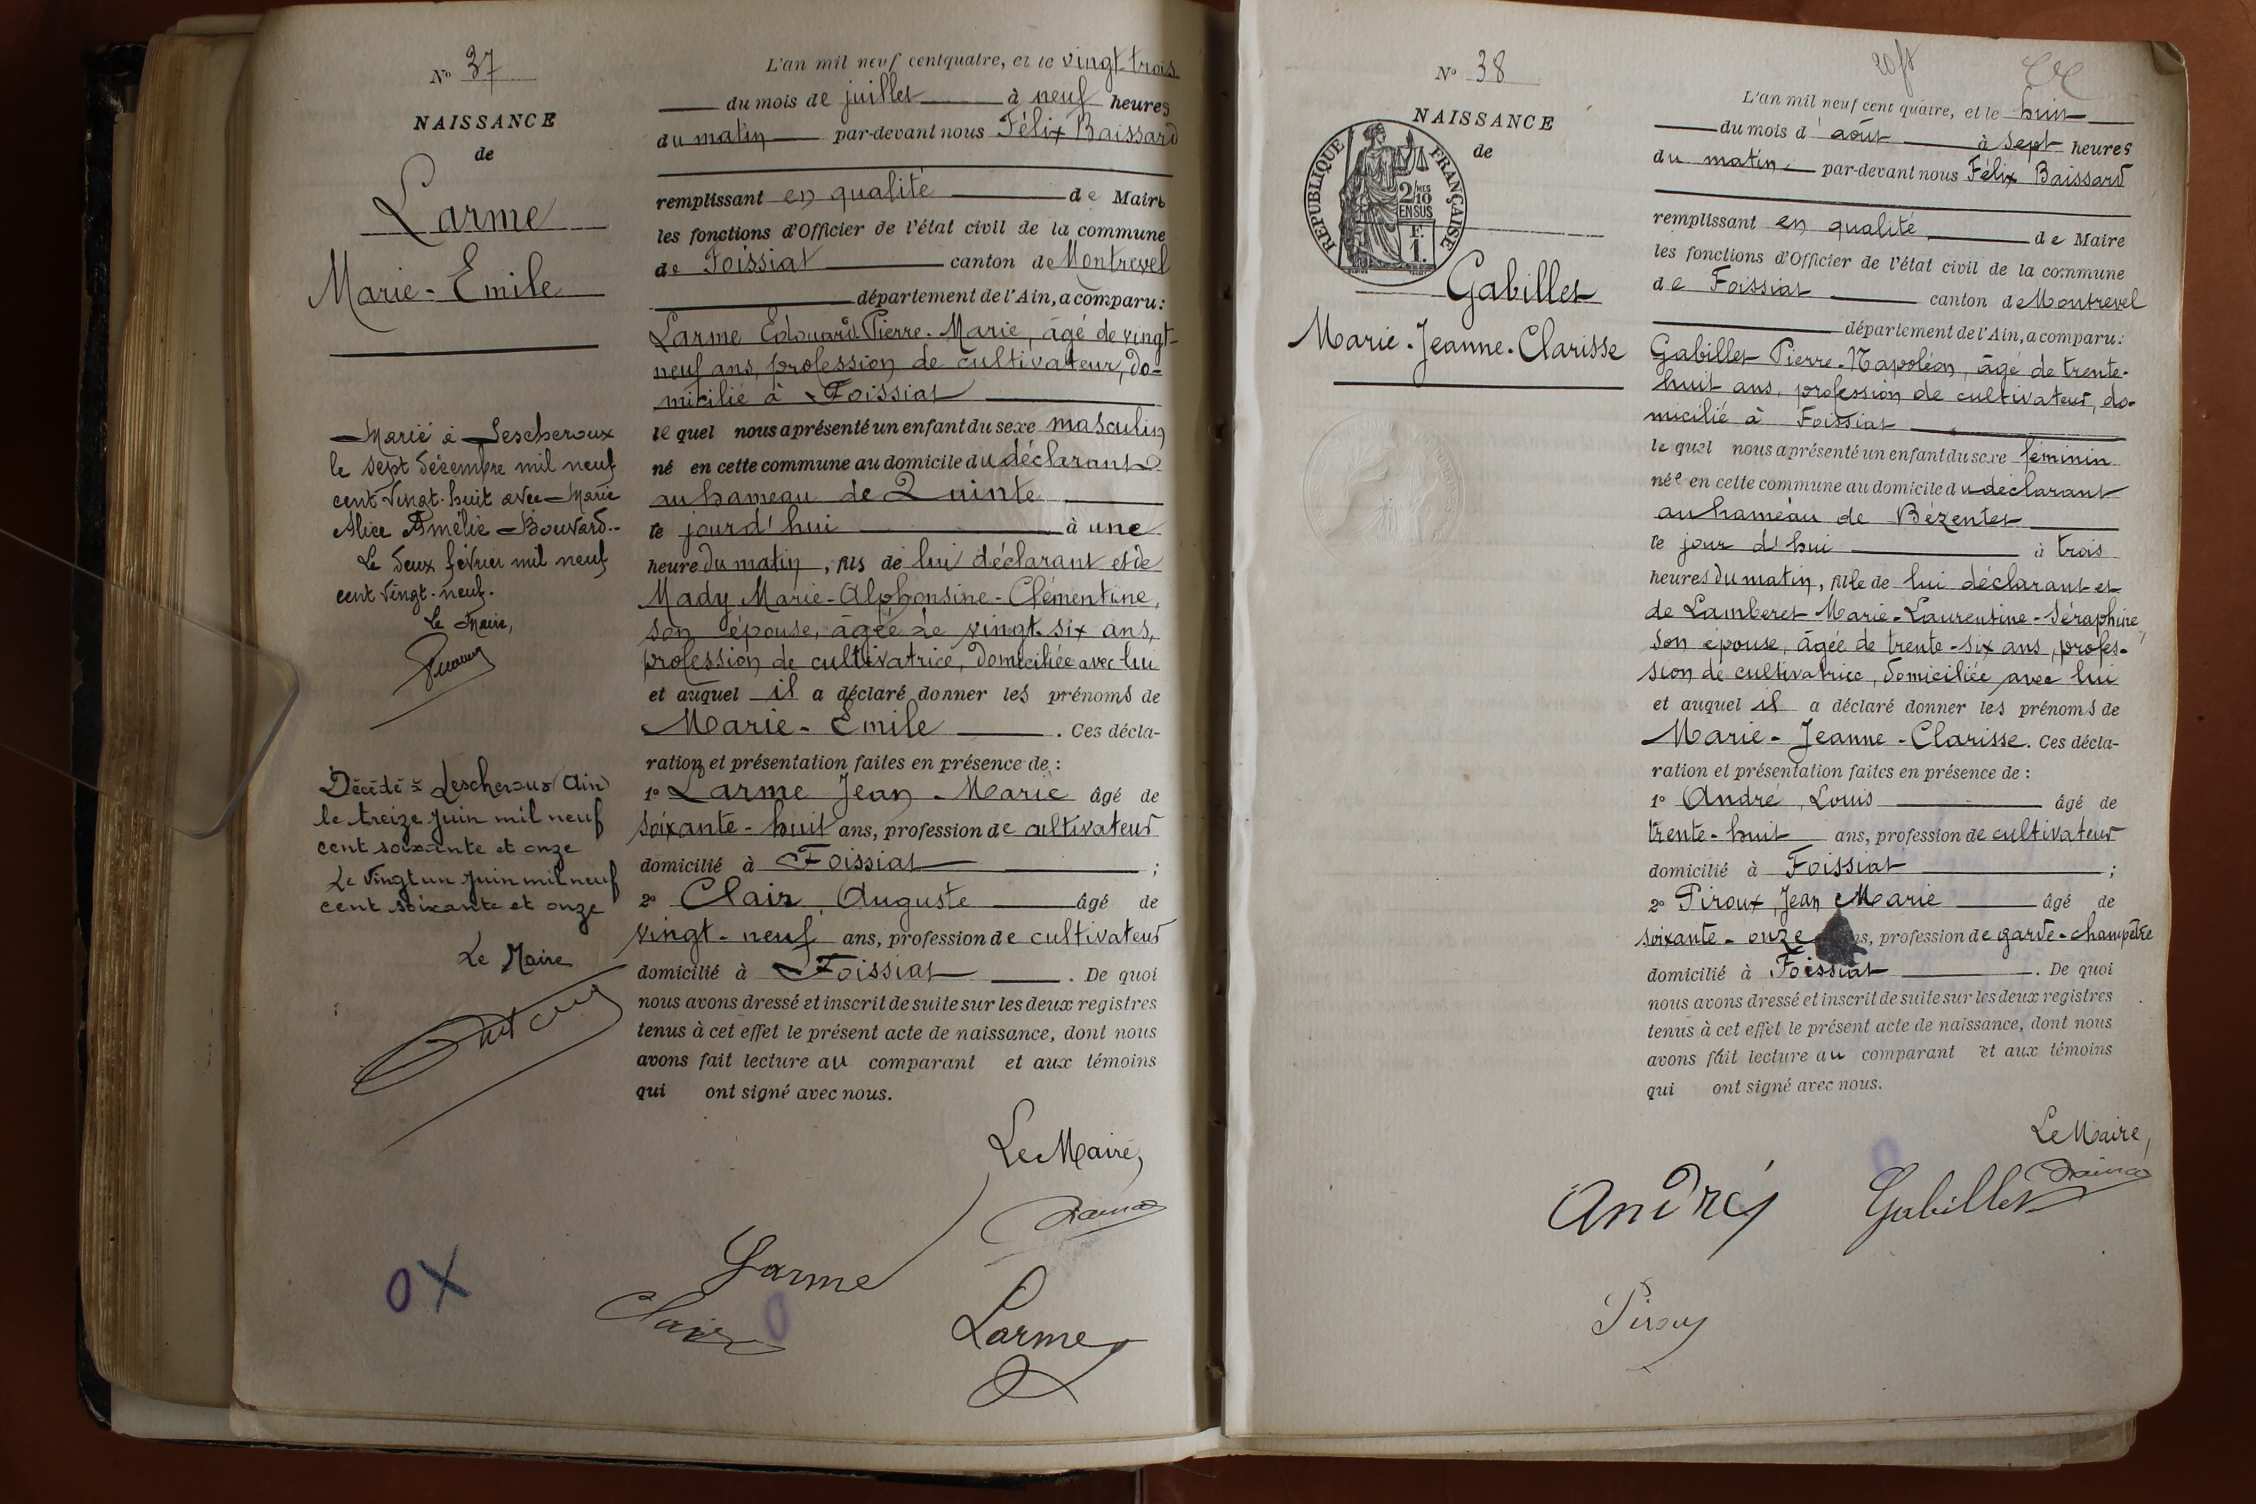 N° 37
NAISSANCE
de
Larme
Marie-Emile
Marié à Lescheroux
le sept décembre mil neuf
cent vingt-huit avec Marie
Alice Amélie Bouvard.-
Le deux février mil neuf
cent vingt-neuf.
Le Maire,
Décédé à Lescheroux (Ain)
le treize juin mil neuf
cent soixante et onze
Le vingt un juin mil neuf
cent soixante et onze
Le Maire
OX
L'an mil neuf cent quatre, et le vingt-trois
du mois de juillet à neuf heures
du matin par-devant nous Félix Baissard
remplissant en qualité de Maire
les fonctions d'Officier de l'état civil de la commune
de Foissiat canton de Montrevel
département de l'Ain, a comparu:
Larme Edouard Pierre-Marie, âgé de vingt-
neuf ans, profession de cultivateur, do-
micilié à Foissiat
lequel nous a présenté un enfant du sexe masculin
né en cette commune au domicile du déclarant
au hameau de Quinte
le jourd'hui à une
heure du matin, fils de lui déclarant et de
Mady Marie-Alphonsine-Clémentine,
son épouse, âgée de vingt-six ans,
profession de cultivatrice, domiciliée avec lui
et auquel il a déclaré donner les prénoms de
Marie-Emile. Ces décla-
ration et présentation faites en présence de:
1° Larme Jean-Marie âgé de
soixante-huit ans, profession de cultivateur
domicilié à Foissiat ;
2° Clair, Auguste âgé de
vingt-neuf ans, profession de cultivateur
domicilié à Foissiat. De quoi
nous avons dressé et inscrit de suite sur les deux registres
tenus à cet effet le présent acte de naissance, dont nous
avons fait lecture au comparant et aux témoins
qui ont signé avec nous.
Le Maire,
Larme
Clair
Larme
N° 38
NAISSANCE
de
RÉPUBLIQUE FRANÇAISE
2/10MES
EN SUS
1 F.
Gabillet
Marie-Jeanne-Clarisse
L'an mil neuf cent quatre, et le huit
du mois d'août à sept heures
du matin par-devant nous Félix Baissard
remplissant en qualité de Maire
les fonctions d'Officier de l'état civil de la commune
de Foissiat canton de Montrevel
département de l'Ain, a comparu:
Gabillet Pierre-Napoléon, âgé de trente-
huit ans, profession de cultivateur, do-
micilié à Foissiat
lequel nous a présenté un enfant du sexe féminin
née en cette commune au domicile du déclarant
au hameau de Bézentet
le jour d'hui à trois
heures du matin, fille de lui déclarant et
de Lamberet Marie-Laurentine-Séraphine,
son épouse, âgée de trente-six ans, profes-
sion de cultivatrice, domiciliée avec lui
et auquel il a déclaré donner les prénoms de
Marie-Jeanne-Clarisse. Ces décla-
ration et présentation faites en présence de:
1° André, Louis âgé de
trente-huit ans, profession de cultivateur
domicilié à Foissiat ;
2° Piroux, Jean Marie âgé de
soixante-onze ans, profession de garde-champêtre
domicilié à Foissiat. De quoi
nous avons dressé et inscrit de suite sur les deux registres
tenus à cet effet le présent acte de naissance, dont nous
avons fait lecture au comparant et aux témoins
qui ont signé avec nous.
Le Maire,
André
Gabillet
Piroux